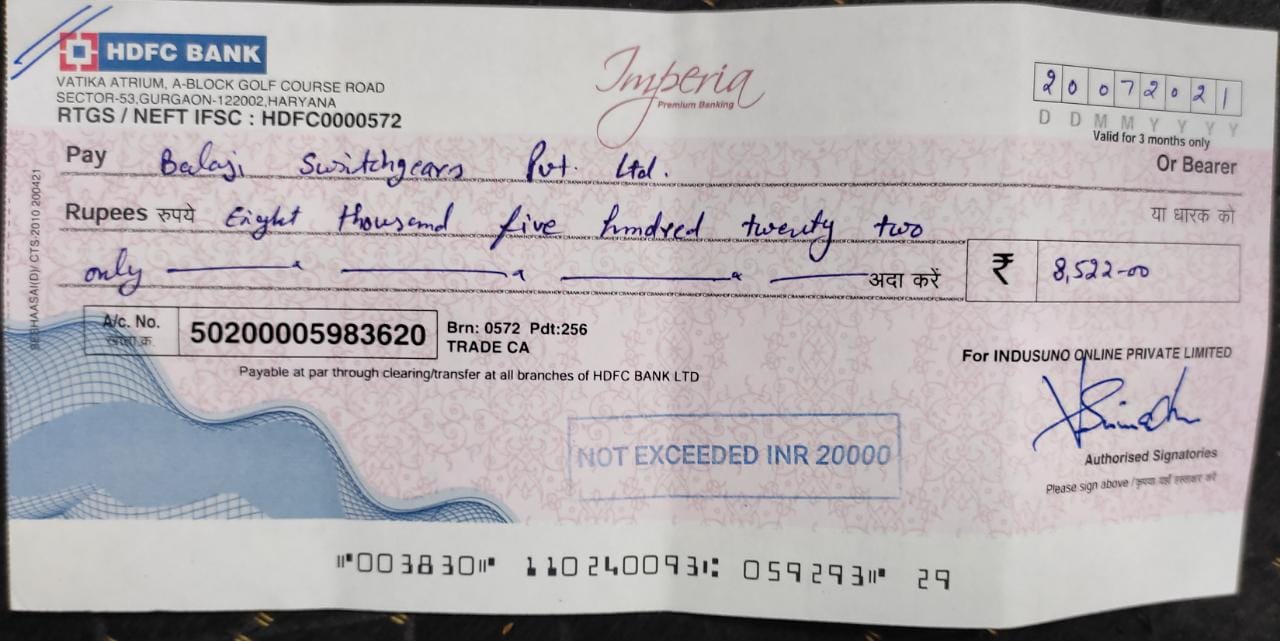 HDFC BANK
VATIKA ATRIUM, A-BLOCK GOLF COURSE ROAD
SECTOR-53,GURGAON-122002,HARYANA
RTGS / NEFT IFSC : HDFC0000572
Imperia
Premium Banking
20072021
D D M M Y Y Y Y
Valid for 3 months only
Pay Balaji Switchgears Pvt. Ltd. Or Bearer
Rupees रुपये Eight thousand five hundred twenty two या धारक को
only अदा करें ₹ 8,522-00
A/c. No. 50200005983620 Brn: 0572 Pdt:256
खाता क्र. TRADE CA
Payable at par through clearing/transfer at all branches of HDFC BANK LTD
For INDUSUNO ONLINE PRIVATE LIMITED
NOT EXCEEDED INR 20000
Authorised Signatories
Please sign above / कृपया यहाँ हस्ताक्षर करें
⑈003830⑈ 110240093⑆ 059293⑈ 29